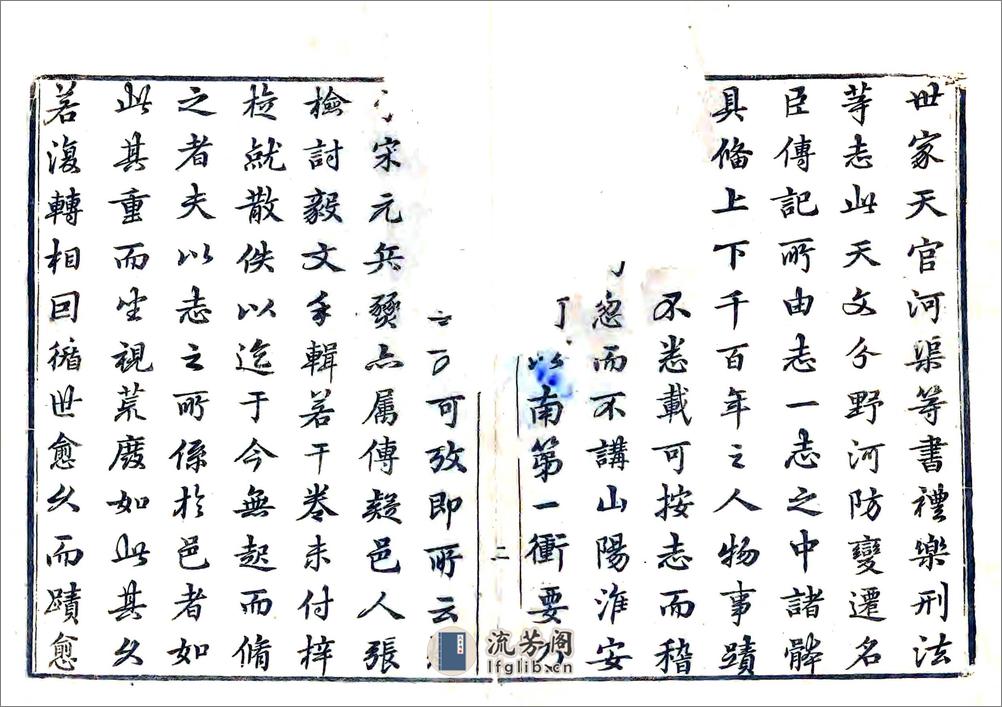 世家天官河渠等書禮樂刑法
等志此天文分野河防變遷名
臣傳記所由志一志之中諸軆
具俻上下千百年之人物事蹟
不悉載可按志而稽
忽而不講山陽淮安
以南第一衝要
二
可攷即所云
宋元兵燹亦属傳疑邑人張
檢討毅文手輯若干卷未付梓
旋就散佚以迄于今無起而脩
之者夫以志之所係於邑者如
此其重而坐視荒廢如此其久
若復轉相囙循世愈久而蹟愈
流芳阁
lfglib.cn